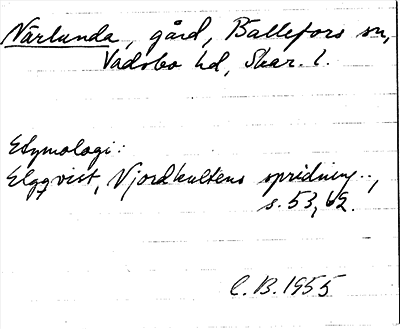 Närlunda, gård, Ballefors sn,
Vadsbo hd, Skar. l.
Etymologi:
Elgqvist, Njordkultens spridning..,
s. 53, 62.
C.B. 1955